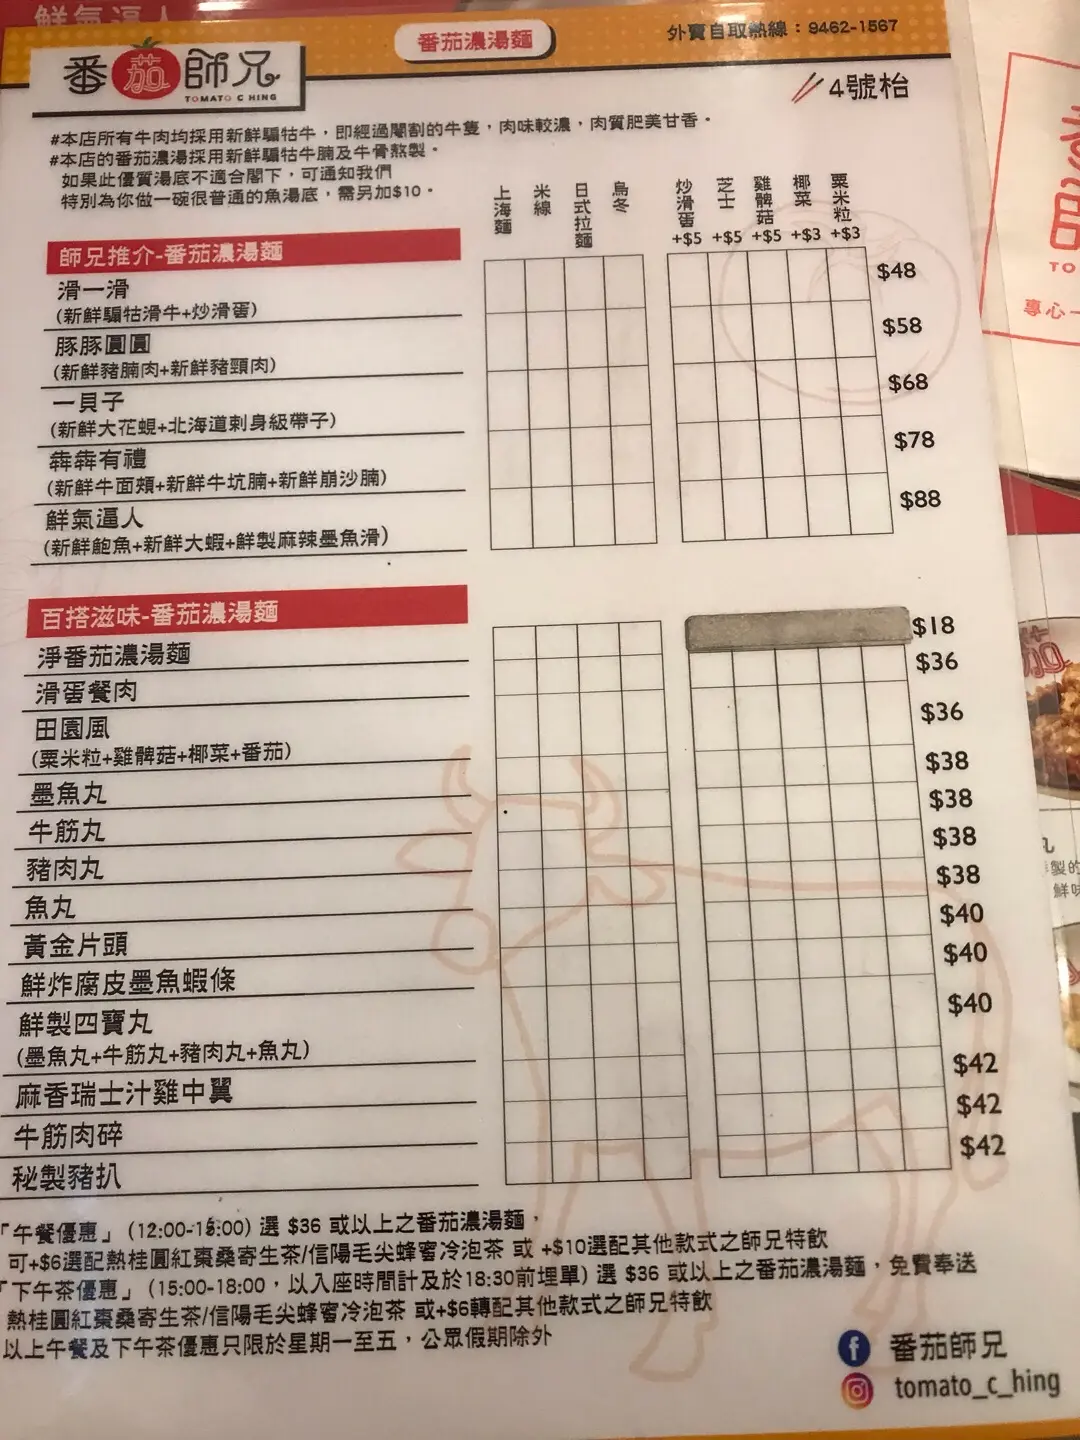 鮮氣逼人
番茄師兄
TOMATO C HING
番茄濃湯麵
外賣自取熱線：9462-1567
4號枱
#本店所有牛肉均採用新鮮騸牯牛，即經過閹割的牛隻，肉味較濃，肉質肥美甘香。
#本店的番茄濃湯採用新鮮騸牯牛腩及牛骨熬製。
如果此優質湯底不適合閣下，可通知我們
特別為你做一碗很普通的魚湯底，需另加$10。
上海麵
米線
日式拉麵
烏冬
炒滑蛋 +$5
芝士 +$5
雞髀菇 +$5
椰菜 +$3
粟米粒 +$3
師兄推介-番茄濃湯麵
滑一滑 $48
(新鮮騸牯滑牛+炒滑蛋)
豚豚圓圓 $58
(新鮮豬腩肉+新鮮豬頸肉)
一貝子 $68
(新鮮大花蜆+北海道刺身級帶子)
犇犇有禮 $78
(新鮮牛面頰+新鮮牛坑腩+新鮮崩沙腩)
鮮氣逼人 $88
(新鮮鮑魚+新鮮大蝦+鮮製麻辣墨魚滑)
百搭滋味-番茄濃湯麵
淨番茄濃湯麵 $18
滑蛋餐肉 $36
田園風 $36
(粟米粒+雞髀菇+椰菜+番茄)
墨魚丸 $38
牛筋丸 $38
豬肉丸 $38
魚丸 $38
黃金片頭 $40
鮮炸腐皮墨魚蝦條 $40
鮮製四寶丸 $40
(墨魚丸+牛筋丸+豬肉丸+魚丸)
麻香瑞士汁雞中翼 $42
牛筋肉碎 $42
秘製豬扒 $42
「午餐優惠」(12:00-15:00) 選 $36 或以上之番茄濃湯麵，
可+$6選配熱桂圓紅棗桑寄生茶/信陽毛尖蜂蜜冷泡茶 或 +$10選配其他款式之師兄特飲
「下午茶優惠」(15:00-18:00，以入座時間計及於18:30前埋單) 選 $36 或以上之番茄濃湯麵，免費奉送
熱桂圓紅棗桑寄生茶/信陽毛尖蜂蜜冷泡茶 或+$6轉配其他款式之師兄特飲
以上午餐及下午茶優惠只限於星期一至五，公眾假期除外
番茄師兄
tomato_c_hing
TO
專心一